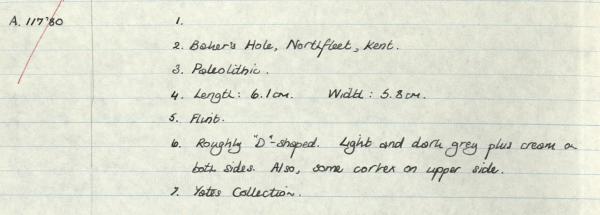 A. 117'80 1.
2. Baker's Hole, Northfleet, Kent.
3. Paleolithic.
4. Length: 6.1cm. Width: 5.8cm.
5. Flint.
6. Roughly "D"-shaped. Light and dark grey plus cream on
both sides. Also, some cortex on upper side.
7. Yates Collection.